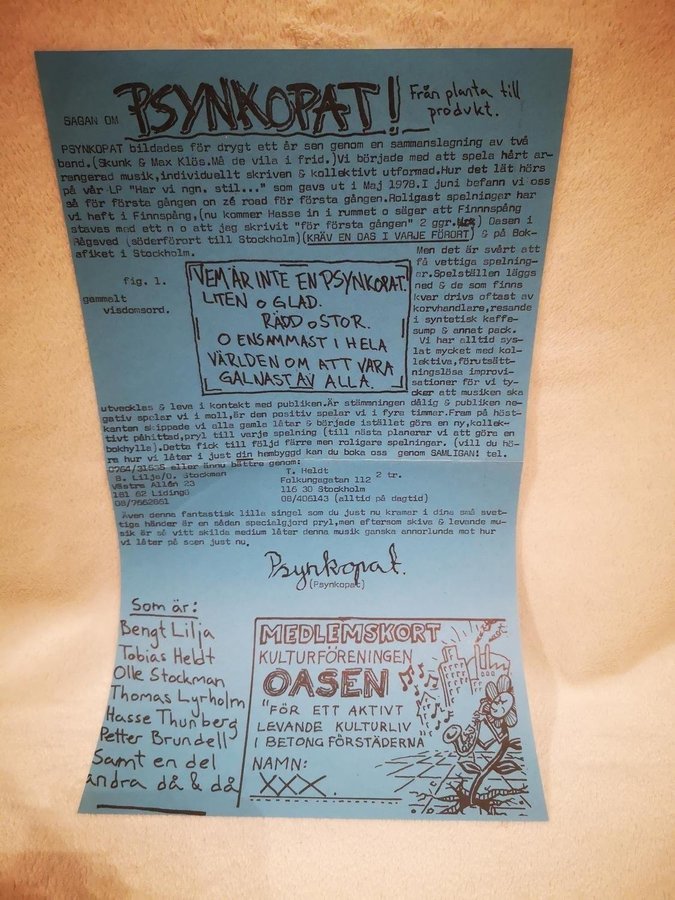 SAGAN OM PSYNKOPAT! Från planta till
produkt.
PSYNKOPAT bildades för drygt ett år sen genom en sammanslagning av två
band.(Skunk & Max Klös.Må de vila i frid.)Vi började med att spela hårt ar-
rangerad musik,individuellt skriven & kollektivt utformad.Hur det lät hörs
på vår LP "Har vi ngn. stil..." som gavs ut i Maj 1978.I juni befann vi oss
så för första gången on zé road för första gången.Roligast spelningar har
vi haft i Finnspång,(nu kommer Hasse in i rummet o säger att Finnnspång
staves med ett n o att jag skrivit "för första gången" 2 ggr. ) Oasen i
Rågsved (söderförort till Stockholm)(KRÄV EN OAS I VARJE FÖRORT) & på Bok-
afiket i Stockholm.
fig. 1.
gammalt
visdomsord.
VEM ÄR INTE EN PSYNKOPAT.
LITEN O GLAD.
RÄDD O STOR.
O ENSAMMAST I HELA
VÄRLDEN OM ATT VARA
GALNAST AV ALLA.
Men det är svårt att
få vettiga spelning-
ar.Spelställen läggs
ned & de som finns
kvar drivs oftast av
korvhandlare,resande
i syntetisk kaffe-
sump & annat pack.
Vi har alltid sys-
lat mycket med kol-
lektiva,förutsätt-
ningslösa improvi-
sationer för vi ty-
cker att musiken ska
utvecklas & leva i kontakt med publiken.Är stämningen dålig & publiken ne-
gativ spelar vi i moll,är den positiv spelar vi i fyra timmar.Fram på höst-
kanten skippade vi alla gamla låtar & började istället göra en ny,kollek-
tivt påhittad,pryl till varje spelning (till nästa planerar vi att göra en
bokhylla).Detta fick till följd färre men roligare spelningar. (vill du hö-
ra hur vi låter i just din hembyggd kan du boka oss genom SAMLIGAN: tel.
0764/31535 eller ännu bättre genom:
B. Lilja/O. Stockman
Västra Allén 23
181 62 Lidingö
08/7662861
T. Heldt
Folkungagatan 112 2 tr.
116 30 Stockholm
08/406143 (alltid på dagtid)
Även denna fantastisk lilla singel som du just nu kramar i dina små svet-
tiga händer är en sådan specialgjord pryl,men eftersom skiva & levande mu-
sik är så vitt skilda medium låter denna musik ganska annorlunda mot hur
vi låter på scen just nu.
Psynkopat.
(Psynkopat)
Som är:
Bengt Lilja
Tobias Heldt
Olle Stockman
Thomas Lyrholm
Hasse Thunberg
Petter Brundell
Samt en del
andra då & då
MEDLEMSKORT
KULTURFÖRENINGEN
OASEN
"FÖR ETT AKTIVT
LEVANDE KULTURLIV
I BETONGFÖRSTÄDERNA
NAMN:
XXX.